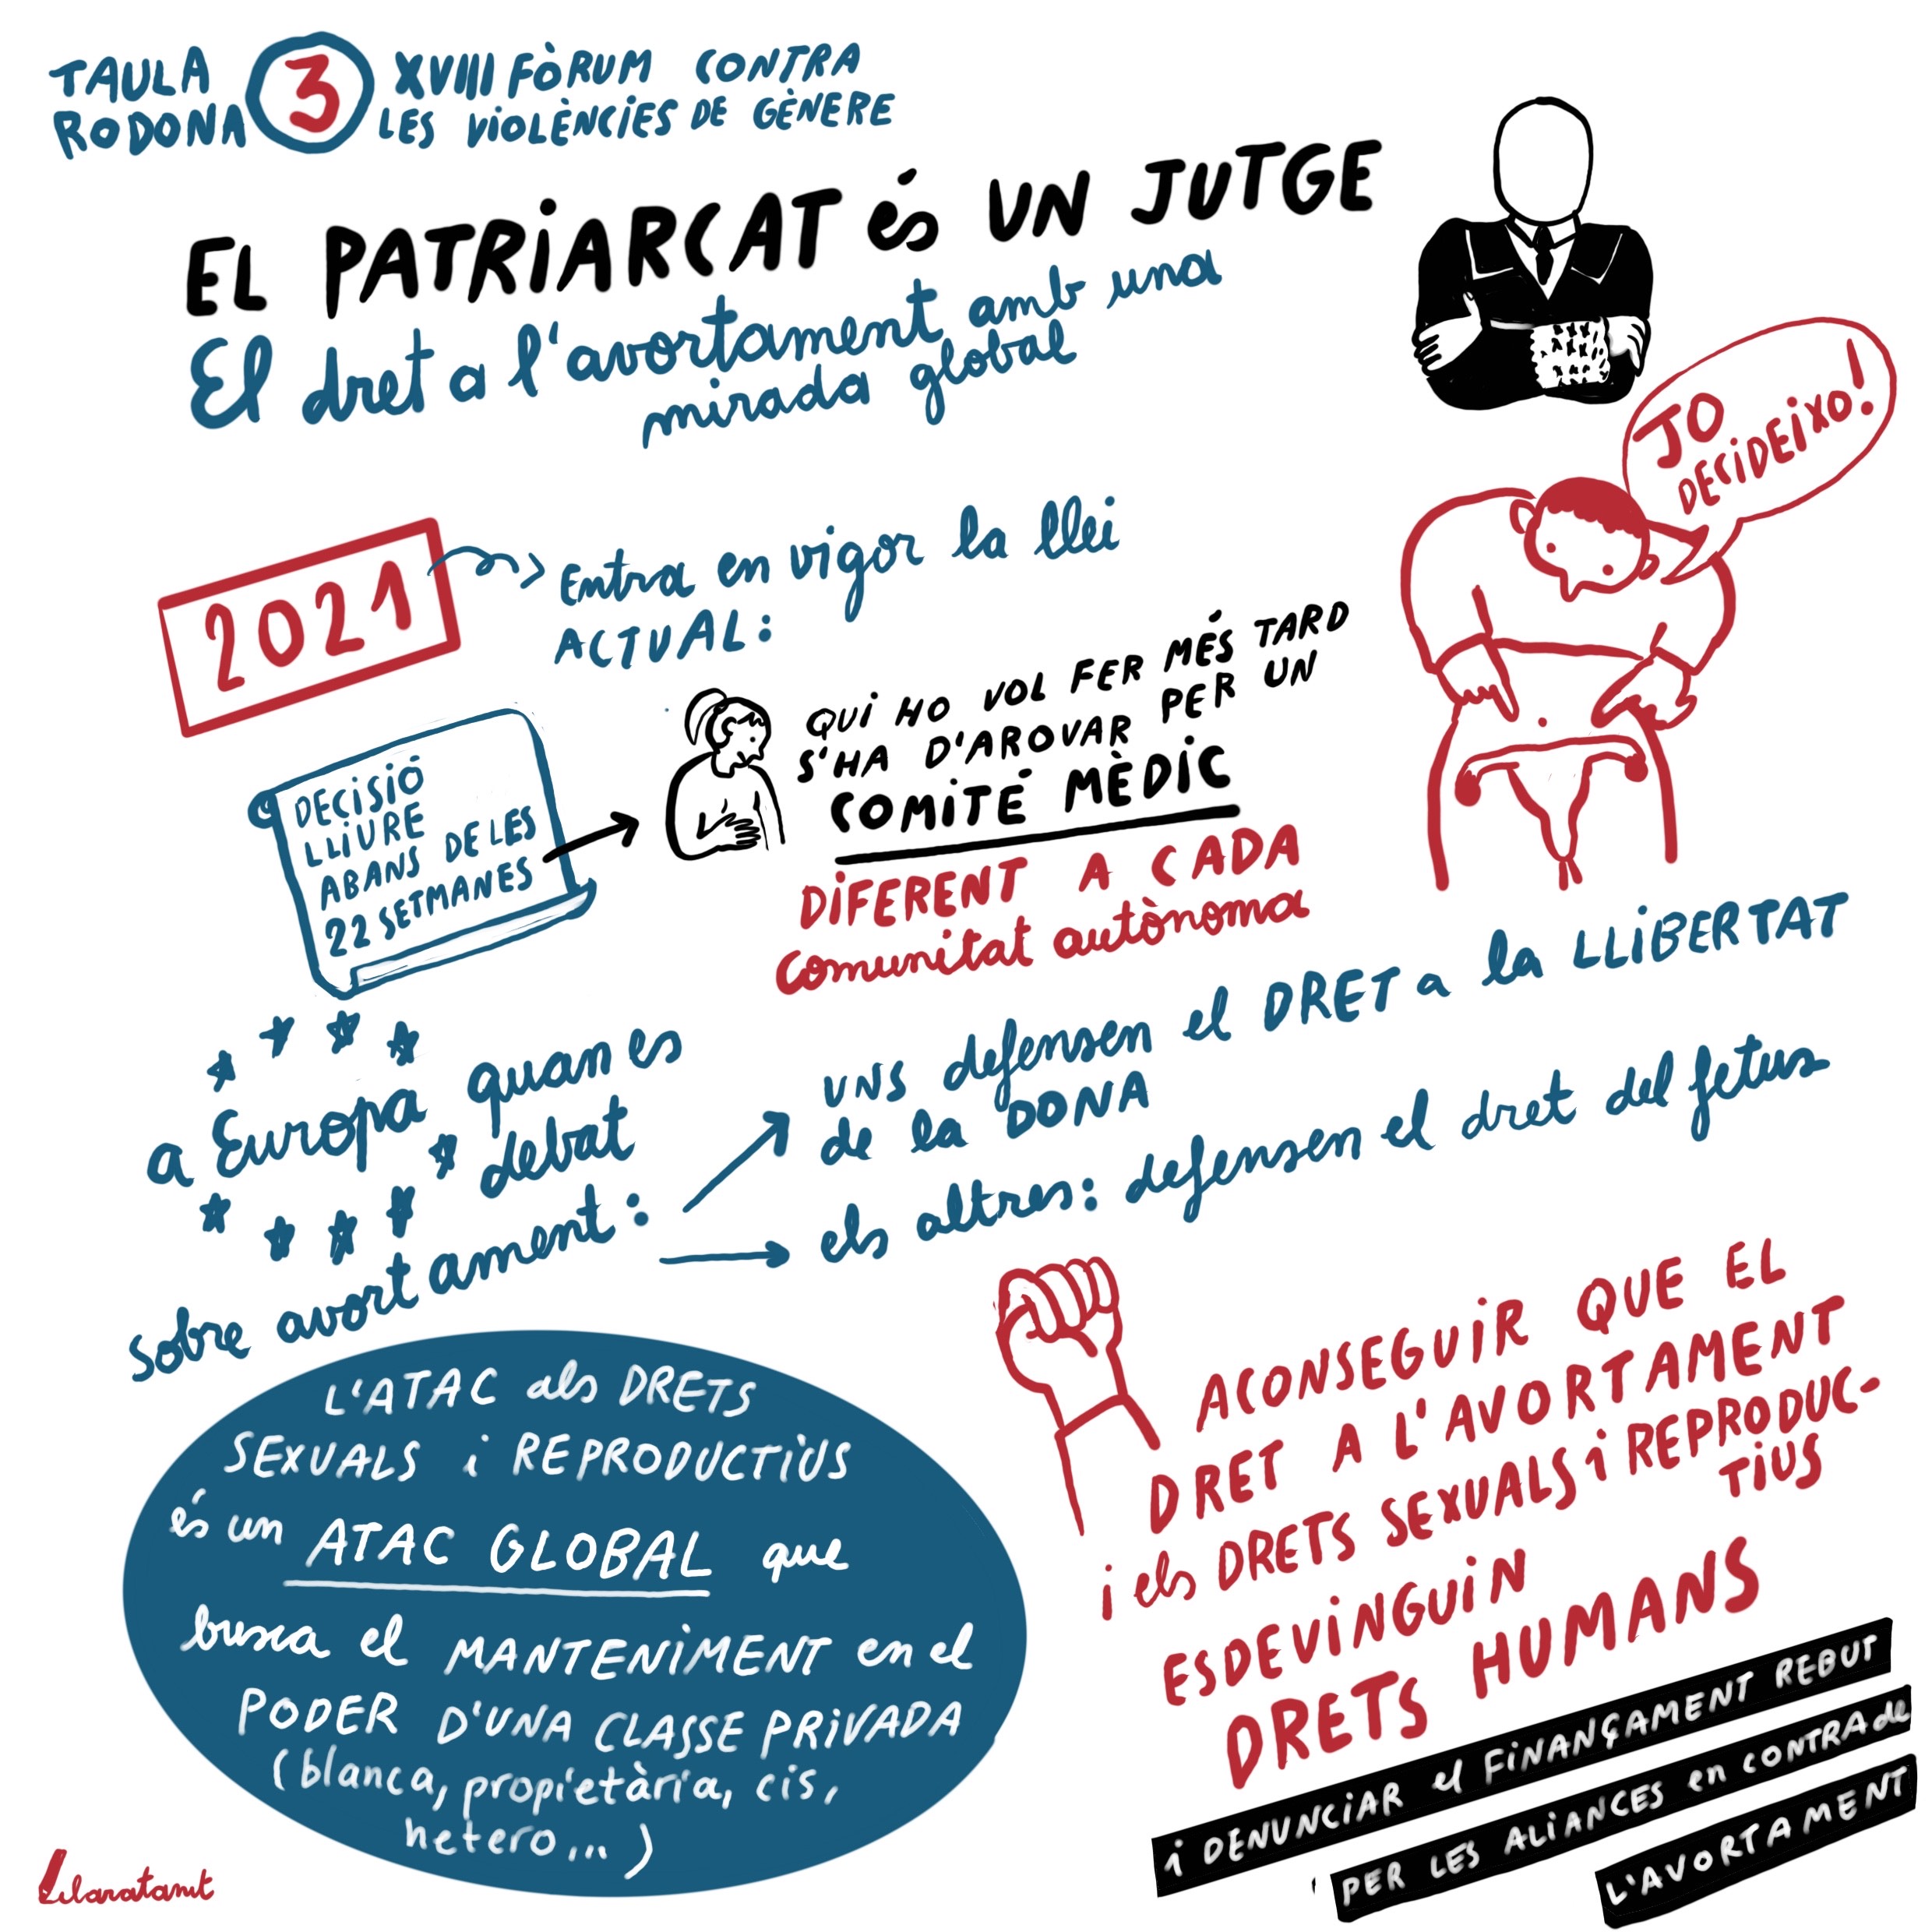 TAULA
RODONA
3
XVIII FÒRUM CONTRA
LES VIOLÈNCIES DE GÈNERE
EL PATRIARCAT és UN JUTGE
El dret a l'avortament amb una
mirada global
JO
DECIDEIXO!
2021
Entra en vigor la llei
ACTUAL:
DECISIÓ
LLIURE
ABANS DE LES
22 SETMANES
QUI HO VOL FER MÉS TARD
S'HA D'AROVAR PER UN
COMITÉ MÈDIC
DIFERENT A CADA
comunitat autònoma
a Europa quan es
debat
sobre avortament:
UNS defensen el DRET a la LLIBERTAT
de la DONA
els altres: defensen el dret del fetus
L'ATAC als DRETS
SEXUALS i REPRODUCTIUS
és un ATAC GLOBAL que
busca el MANTENIMENT en el
PODER D'UNA CLASSE PRIVADA
(blanca, propietària, cis,
hetero...)
ACONSEGUIR QUE EL
DRET A L'AVORTAMENT
i els DRETS SEXUALS i REPRODUC-
TIUS
ESDEVINGUIN
DRETS HUMANS
i DENUNCIAR el FINANÇAMENT REBUT
PER LES ALIANCES en CONTRA de
L'AVORTAMENT